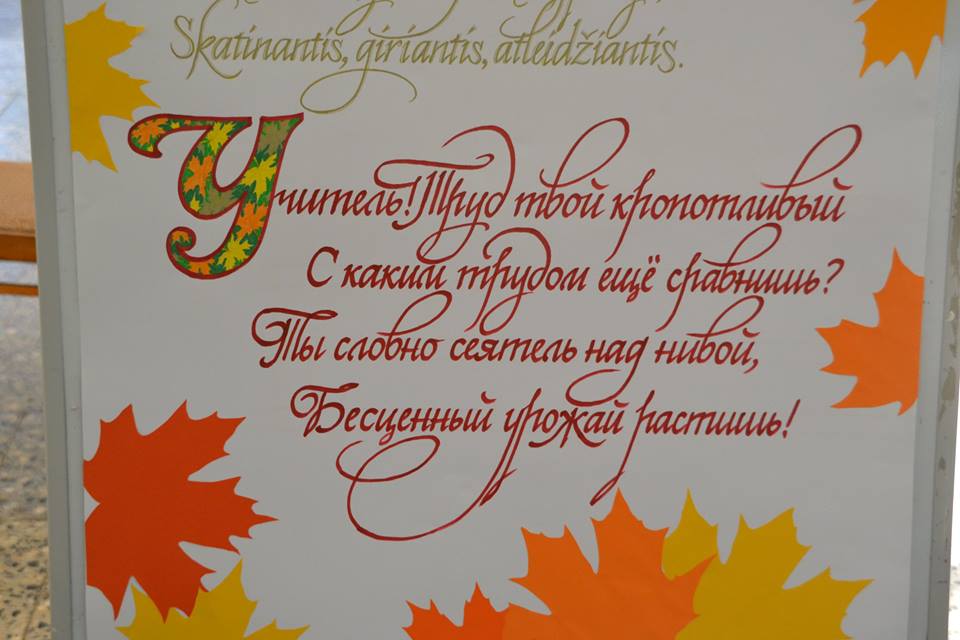 Skatinantis, giriantis, atleidžiantis.
Учитель! Труд твой кропотливый
С каким трудом ещё сравнишь?
Ты словно сеятель над нивой,
Бесценный урожай растишь!